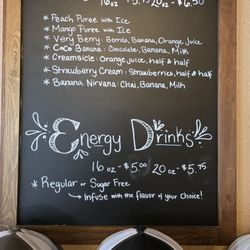 16oz - $5.75 20oz - $6.50
* Peach Puree with Ice
* Mango Puree with Ice
* Very Berry: Berries, Banana, Orange Juice
* CoCo Banana: Chocolate, Banana, Milk
* Creamsicle: Orange juice, half & half
* Strawberry Cream: Strawberries, half & half
* Banana Nirvana: Chai, Banana, Milk
Energy Drinks
16oz - $5.00 20oz - $5.75
* Regular or Sugar Free
Infuse with the flavor of your choice!